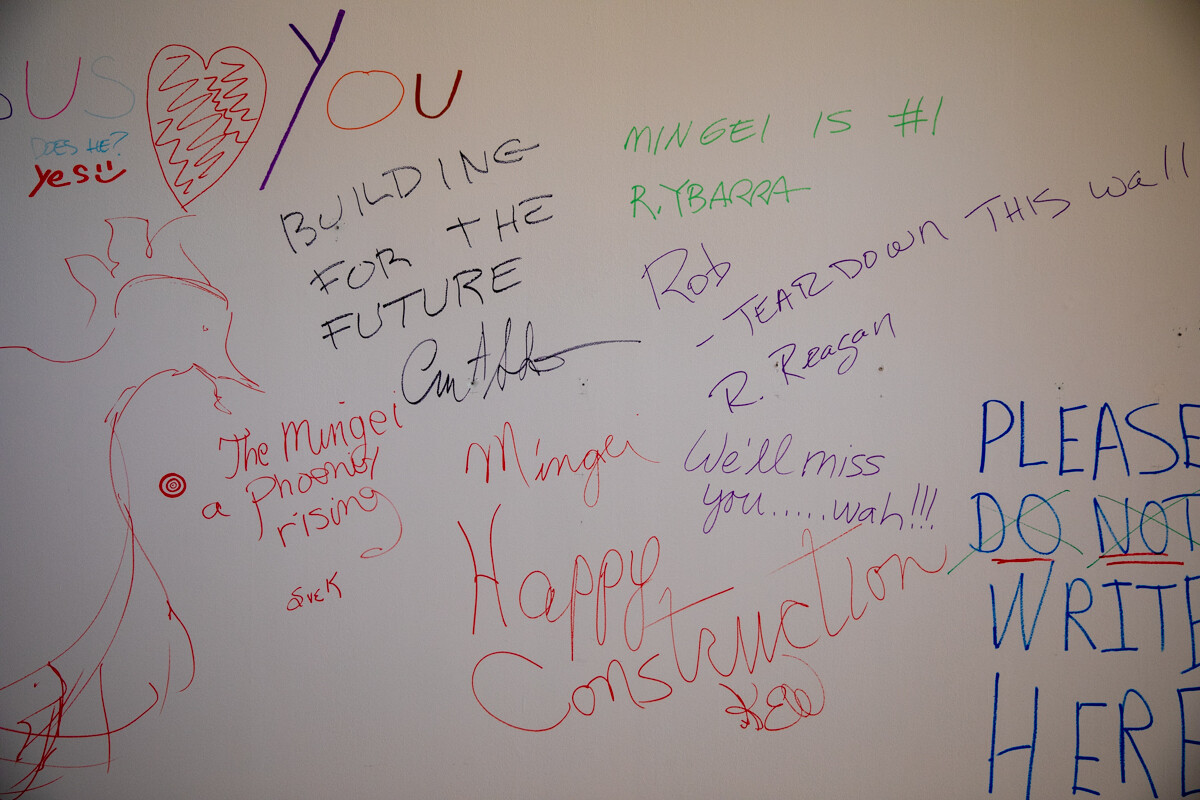 SUS YOU
DOES HE?
Yes
BUILDING
FOR THE
FUTURE
MINGEI IS #1
R. YBARRA
Rob
- TEAR DOWN THIS Wall
R. Reagan
The Mingei
a Phoenix
rising
Mingei
We'll miss
you.....wah!!!
Happy
Construction
PLEASE
DO NOT
WRITE
HERE